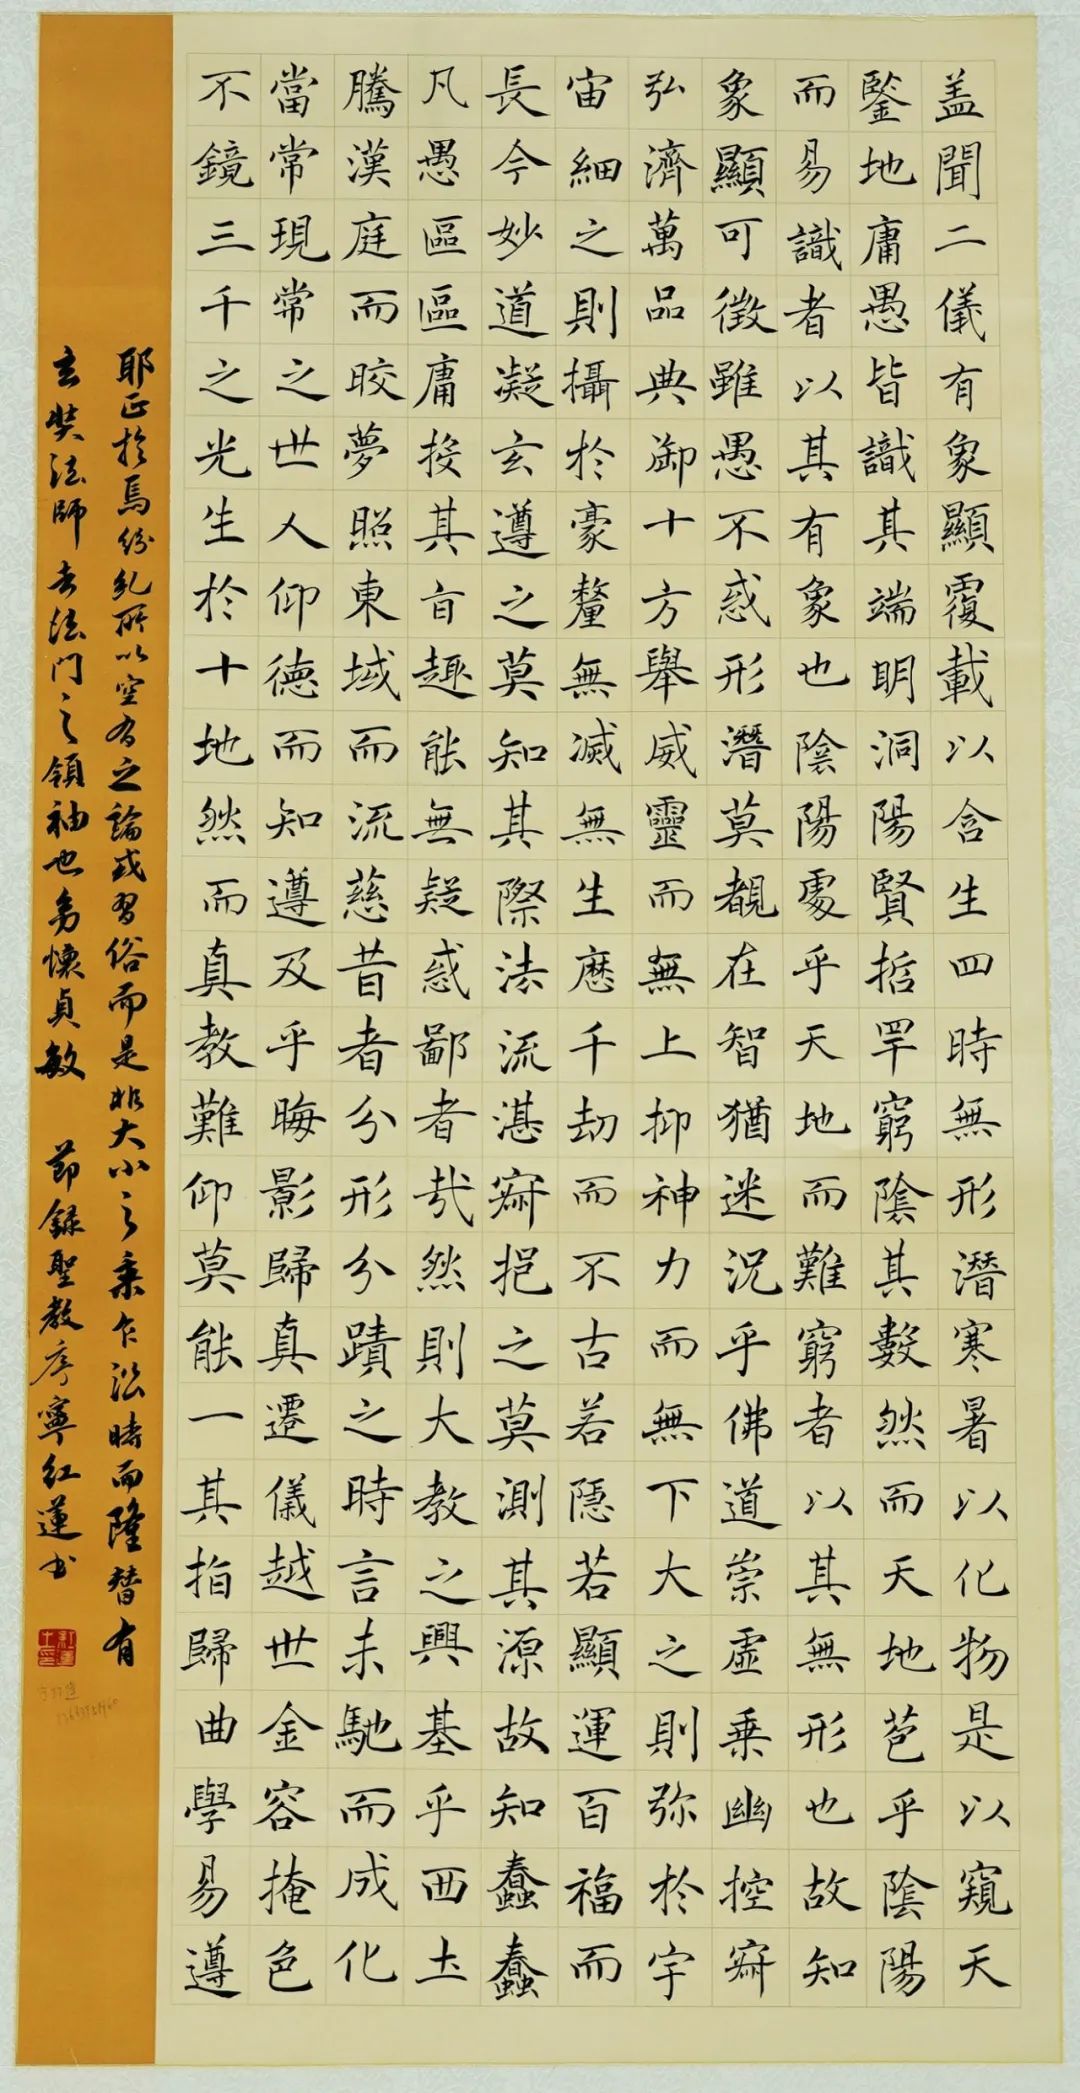 盖聞二儀有象顯覆載以含生四時無形潛寒暑以化物是以窺天
鑒地庸愚皆識其端明洞陽賢哲罕窮陰其數然而天地苞乎陰陽
而易識者以其有象也陰陽處乎天地而難窮者以其無形也故知
象顯可徵雖愚不惑形潛莫覩在智猶迷況乎佛道崇虛乗幽控寂
弘濟萬品典御十方舉威靈而無上抑神力而無下大之則弥於宇
宙細之則攝於豪釐無滅無生歷千劫而不古若隱若顯運百福而
長今妙道凝玄遵之莫知其際法流湛寂挹之莫測其源故知蠢蠢
凡愚區區庸投其旨趣能無疑惑鄙者㢤然則大教之興基乎西土
騰漢庭而皎夢照東域而流慈昔者分形分蹟之時言未馳而成化
當常現常之世人仰德而知遵及乎晦影歸真遷儀越世金容掩色
不鏡三千之光生於十地然而真教難仰莫能一其指歸曲學易遵
耶正於焉紛糺所以空有之論或習俗而是非大小之乗乍沿時而隆替有
玄奘法師者法門之領袖也㓜懷貞敏 節録聖教序寧紅蓮书